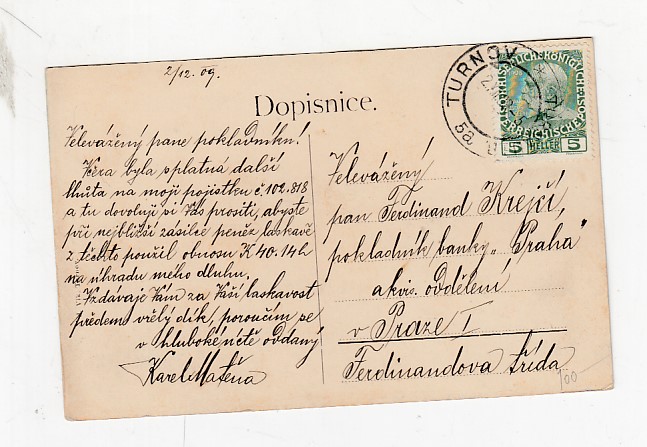 2/12.09.
Dopisnice.
Velevážený pane pokladníku!
Včera byla splatná další
lhůta na moji pojistku č. 102.818
a tu dovoluji si Vás prositi, abyste
při nejbližší zásilce peněz laskavě
z těchto použil obnosu K 40.14h
na úhradu mého dluhu.
Vzdávaje Vám za Vaši laskavost
předem vřelý dík, poroučím se
v hluboké úctě oddaný
Karel Matěna
TURNOV
5a
KAISERLICHE KÖNIGLICHE
ÖSTERREICHISCHE POST
5 HELLER 5
Velevážený
pan Ferdinand Krejčí,
pokladník banky „Praha"
akvis. oddělení
v Praze I
Ferdinandova třída
100